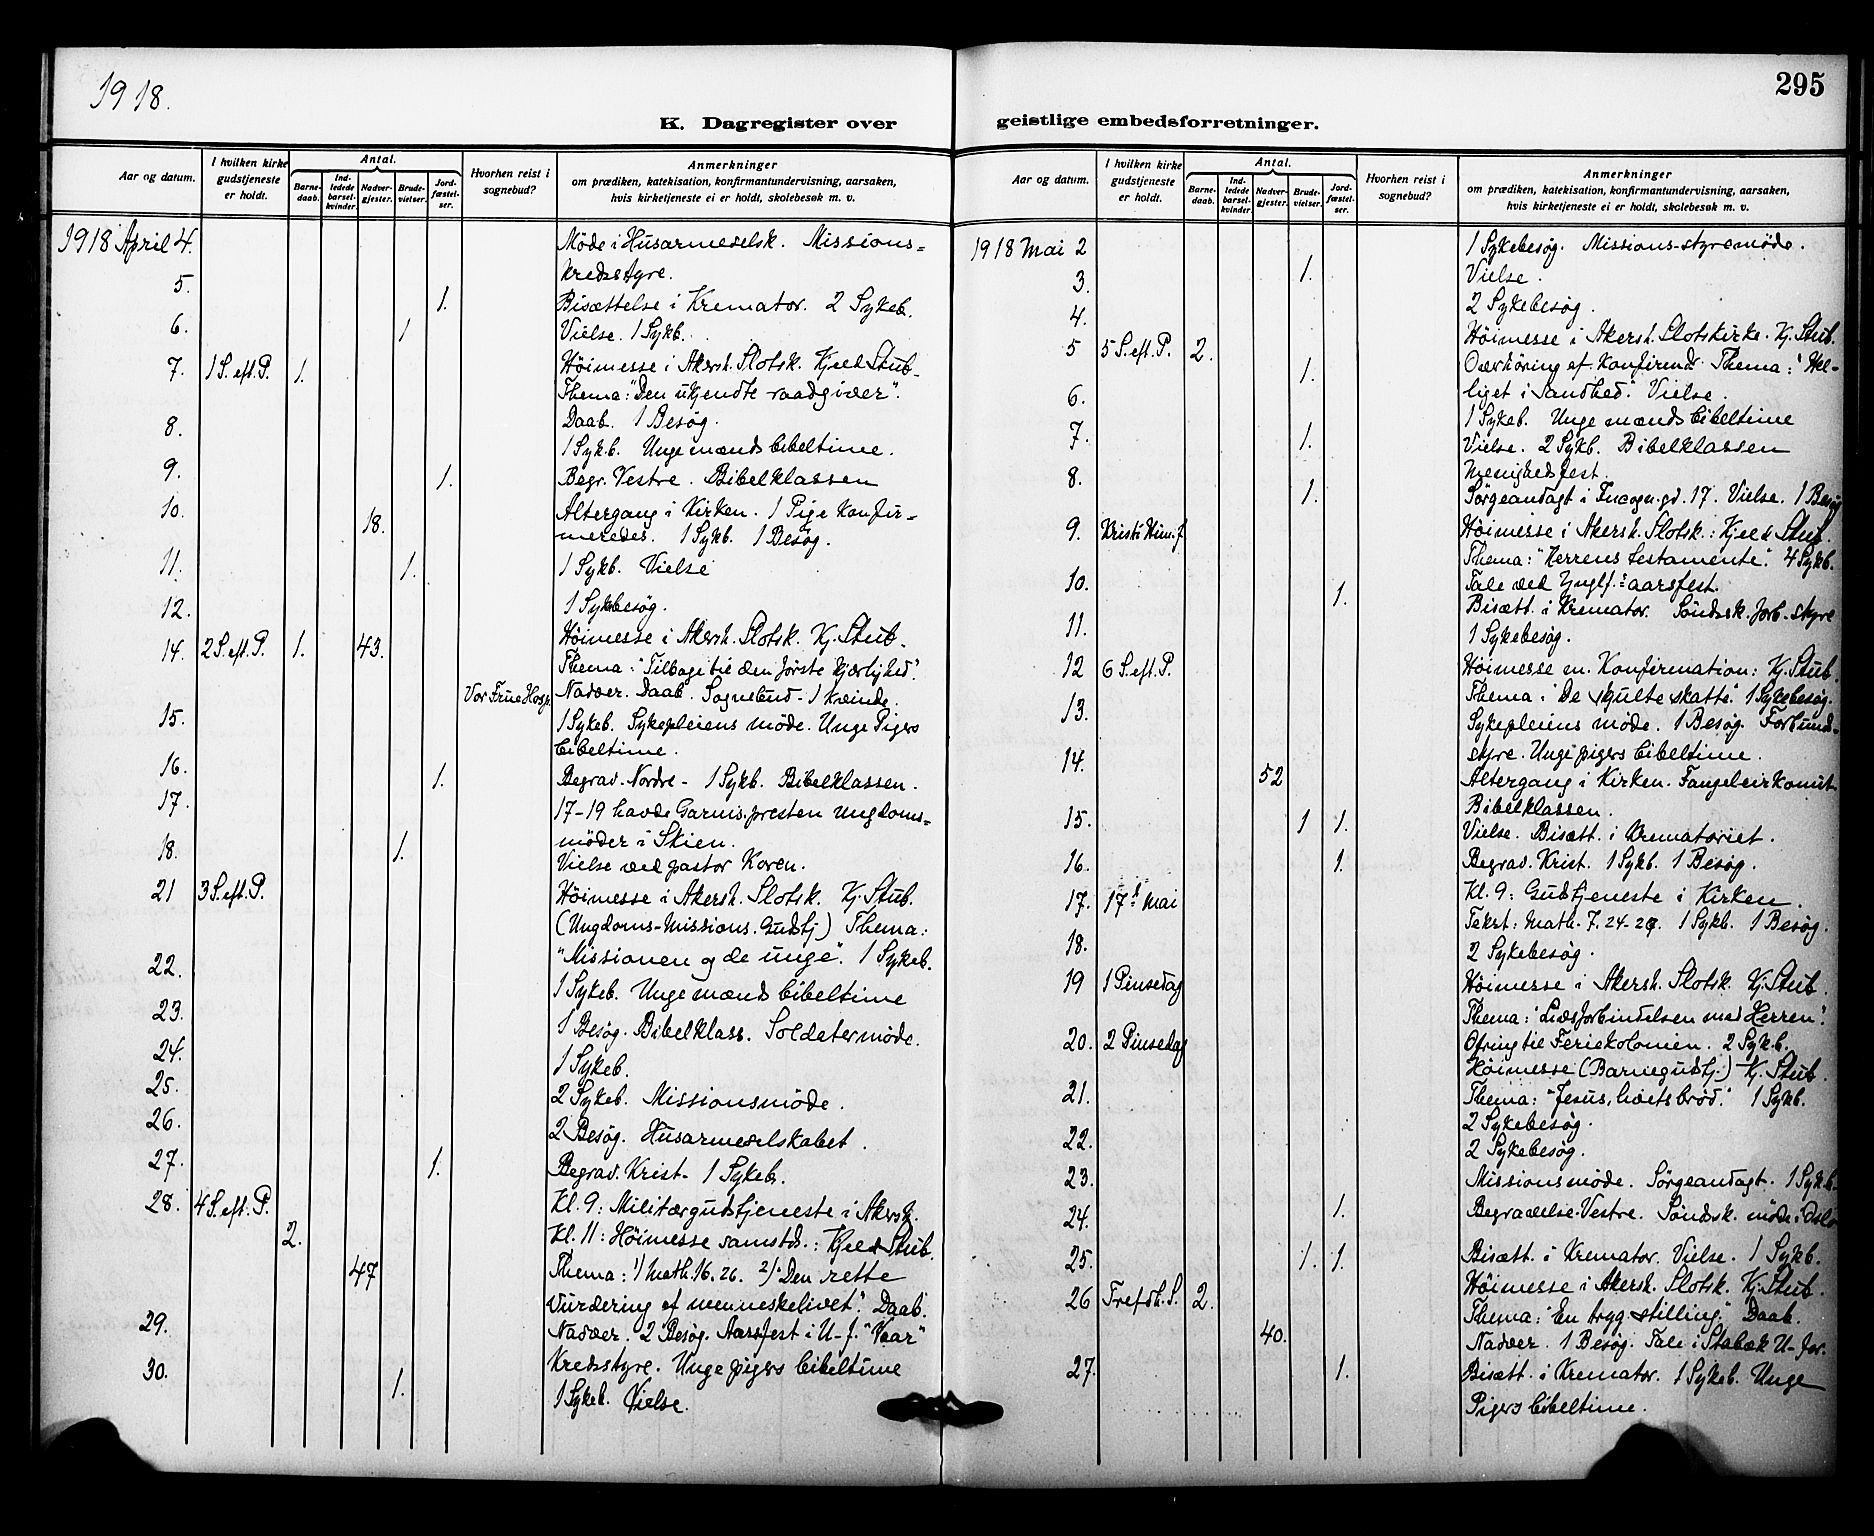 1918.
K. Dagregister over
Aar og datum.
I hvilken kirke gudstjeneste er holdt.
Antal.
Barne-daab.
Ind-ledede barsel-kvinder.
Nadver-gjester.
Brude-vielser.
Jord-fæstel-ser.
Hvorhen reist i sognebud?
Anmerkninger
om prædiken, katekisation, konfirmantundervisning, aarsaken,
hvis kirketjeneste ei er holdt, skolebesøk m. v.
1918 April 4. Møde i Husarmeselsk. Missions=
kredsstyre.
5. 1. Bisættelse i Kremator. 2 Sykeb.
6. 1 Vielse. 1 Sykb.
7. 1 S. eft. P. 1. Høimesse i Akersh. Slotsk. Kjeld Stub.
Thema: "Den ukjendte raadgiver".
Daab. 1 Besøg.
8. 1 Sykb. Unge mænds bibeltime.
9. 1. Begr. Vestre. Bibelklassen
10. 18. Altergang i Kirken. 1 Pige Konfir=
meredes. 1 Sykb. 1 Besøg.
11. 1. 1 Sykb. Vielse
12. 1 Sykebesøg.
14. 2 S. eft. P. 1. 43. Høimesse i Akersh. Slotsk. Kj. Stub.
Thema: "Tilbage til den første kjærlighed".
Vor Frue Hosp. Nadver. Daab. Sognebud - 1 kvinde.
15. 1 Sykeb. Sykepleiens møde. Unge Pigers
bibeltime.
16. 1. Begrav. Nordre - 1 Sykb. Bibelklassen.
17. 17-19 havde Garnis.presten Ungdoms=
møder i Skien.
18. 1. Vielse ved pastor Koren.
21 3 S. eft. P. Høimesse i Akersh. Slotsk. Kj. Stub.
(Ungdoms-Missions. Gudstj) Thema:
"Missionen og de unge". 1 Sykeb.
22. 1 Sykeb. Unge mænds bibeltime
23. 1 Besøg. Bibelklass. Soldatermøde.
24. 1 Sykeb.
25. 2 Sykeb. Missionsmøde.
26. 2 Besøg. Husarmeselskabet.
27. 1. Begrav. Krist. 1 Sykeb.
28. 4 S. eft. P. Kl. 9: Militærgudstjeneste i Akersh.
2. Kl. 11: Høimesse samstds.: Kjeld Stub.
47 Thema: 1) Math. 16. 26. 2) "Den rette
Vurdering af menneskelivet". Daab.
29. Nadver. 2 Besøg. Aarsfest i U-f. "Vaar"
Kredsstyre. Unge pigers bibeltime
30. 1. 1 Sykeb. Vielse.
295
geistlige embedsforretninger.
Aar og datum.
I hvilken kirke gudstjeneste er holdt.
Antal.
Barne-daab.
Ind-ledede barsel-kvinder.
Nadver-gjester.
Brude-vielser.
Jord-fæstel-ser.
Hvorhen reist i sognebud?
Anmerkninger
om prædiken, katekisation, konfirmantundervisning, aarsaken,
hvis kirketjeneste ei er holdt, skolebesøk m. v.
1918 Mai 2 1 Sykebesøg. Missions-styremøde.
3. 1. Vielse.
4. 2 Sykebesøg.
5 5 S. eft. P. 2. Høimesse i Akersh. Slotskirke. Kj. Stub.
1. Overhøring af Konfirmd. Thema: "Hel-
liget i Sandhed". Vielse.
6. 1 Sykeb. Unge mænds bibeltime
7. 1. Vielse. 2 Sykb. Bibelklassen
Menighedsfest.
8. 1. Sørgeandagt i Incogn.gd. 17. Vielse. 1 Besøg
9. Kristi Him. f. Høimesse i Akersh. Slotsk.: Kjeld Stub.
Thema: "Herrens testamente". 4 Sykb.
Tale ved Ynglf.: aarsfest.
10. 1. Bisætt. i Kremator. Søndsk. forb. styre
11. 1 Sykebesøg.
12 6 S. eft. P. Høimesse m. Konfirmation: Kj. Stub.
Thema: "De skjulte skatte". 1 Sykebesøg.
13. Sykepleiens møde. 1 Besøg. Forbunds-
styre. Unge pigers bibeltime.
14. 52 Altergang i Kirken. Fangeleirkomit.
Bibelklassen.
15. 1 1. Vielse. Bisætt. i Krematoriet.
16. 1. Begrav. Krist. 1 Sykb. 1 Besøg.
17. 17de Mai Kl. 9: Gudstjeneste i Kirken.
Tekst: Math. 7. 24-29. 1 Sykb. 1 Besøg.
18. 2 Sykebesøg.
19 1 Pinsedag Høimesse i Akersh. Slotsk. Kj. Stub.
Thema: "Livsforbindelsen med Herren".
Ofring til Feriekolonien. 2 Sykb.
20. 2 Pinsedag Høimesse (Barnegudstj.) Kj. Stub.
Thema: "Jesus, livets brød." 1 Sykb.
21. 2 Sykebesøg.
22. 2 Sykebesøg.
23. Missionsmøde. Sørgeandagt. 1 Sykb.
24. 1. Begravelse. Vestre. Søndsk. møde i Oslo
25. 1. 1. Bisætt. i Kremator. Vielse. 1 Sykb.
26 Trefdh. S. 2. Høimesse i Akersh. Slotsk. Kj. Stub.
Thema: "En tryg stilling." Daab.
40. Nadver. 1 Besøg. Tale i Stabæk U-for.
27. 1. Bisætt. i Kremator. 1 Sykeb. Unge
Pigers bibeltime.